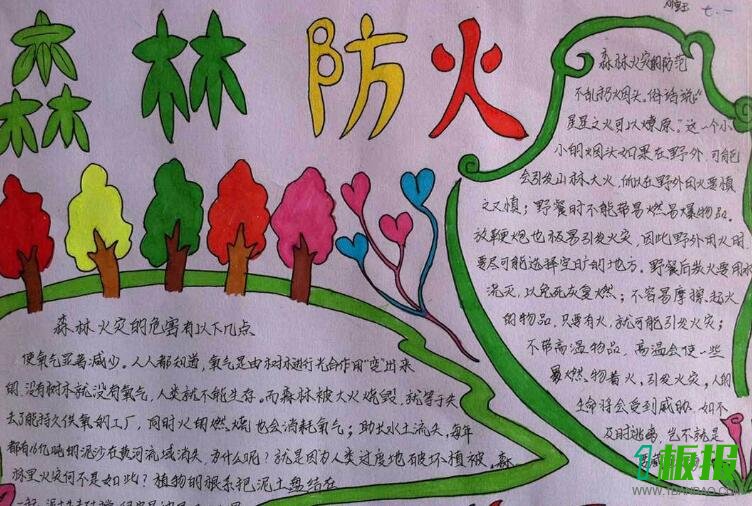 森林防火
七.一
森林火灾的防范
不乱扔烟头。俗话说"
星星之火可以燎原。"这一个小
小的烟头如果在野外,可能
会引发山林大火,所以在野外用火要慎
之又慎;野餐时不能带易燃易爆物品。
放鞭炮也极易引发火灾,因此野外用火时
要尽可能选择空旷的地方。野餐后散火要用水
浇灭,以免死灰复燃;不容易摩擦起火
的物品,只要有火,就可能引发火灾;
不带高温物品,高温会使一些
易燃物着火,引发火灾,人的
生命将会受到威胁,如不
及时逃离,岂不就是
森林火灾的危害有以下几点
使氧气显著减少。人人都知道,氧气是由树木进行光合作用"变"出来
的,没有树木就没有氧气,人类就不能生存。而森林被大火烧毁,就等于失
去了能持久供氧的工厂,同时火的燃烧也会消耗氧气;助长水土流失,每年
都有16亿吨的泥沙在黄河流域消失,为什么呢?就是因为人类过度地破坏植被。森
林里火灾何不是如此?植物的根系把泥土盘结在
板报
WWW.1BANBAO.COM